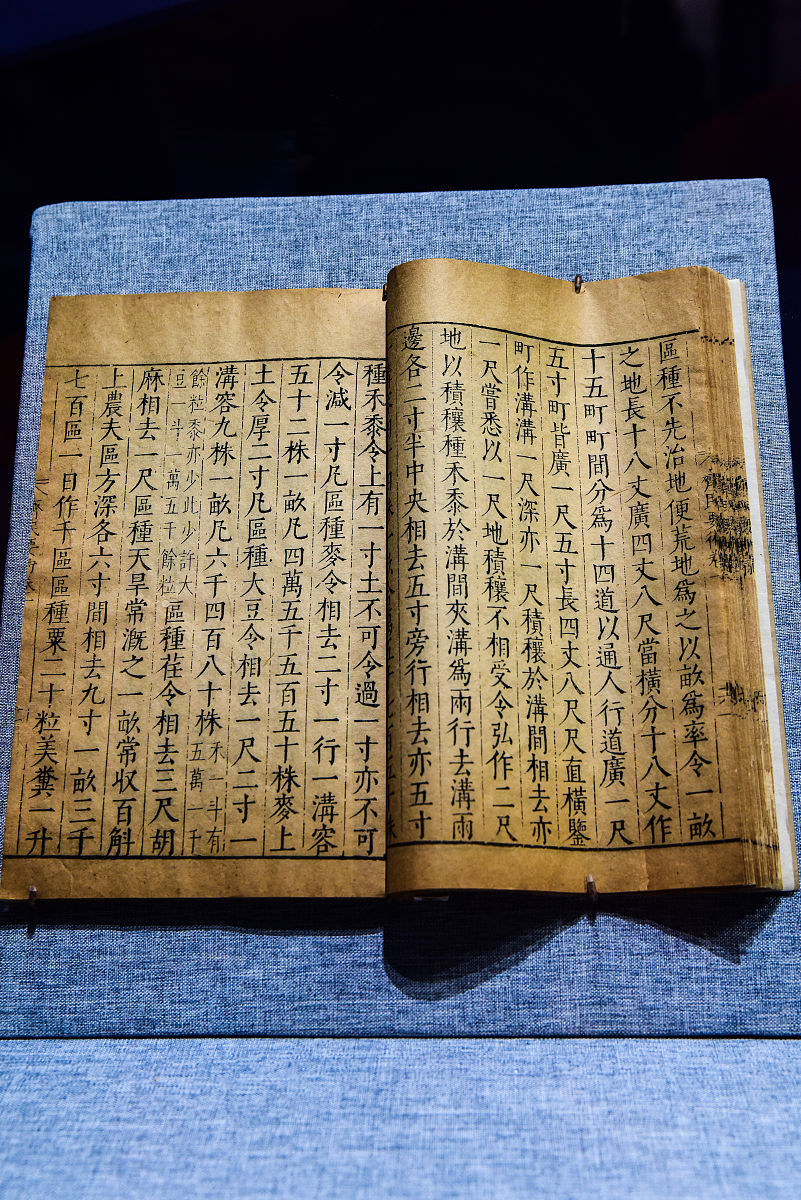 區種不先治地便荒地爲之以畝爲率令一畝
之地長十八丈廣四丈八尺當橫分十八丈作
十五町町間分爲十四道以通人行道廣一尺
五寸町皆廣一尺五寸長四丈八尺尺直橫鑒
町作溝溝一尺深亦一尺積穰於溝間相去亦
一尺嘗悉以一尺地積穰不相受令弘作二尺
地以積穰種禾黍於溝間夾溝爲兩行去溝兩
邊各二寸半中央相去五寸旁行相去亦五寸
種禾黍令上有一寸土不可令過一寸亦不可
令減一寸凡區種麥令相去二寸一行一溝容
五十二株一畝凡四萬五千五百五十株麥上
土令厚二寸凡區種大豆令相去一尺二寸一
溝容九株一畝凡六千四百八十株禾一斗有五萬一千
餘粒黍亦少此少許大豆一斗一萬五千餘粒區種荏令相去三尺胡
麻相去一尺區種天旱常漑之一畝常收百斛
上農夫區方深各六寸間相去九寸一畝三千
七百區一日作千區區種粟二十粒美糞一升